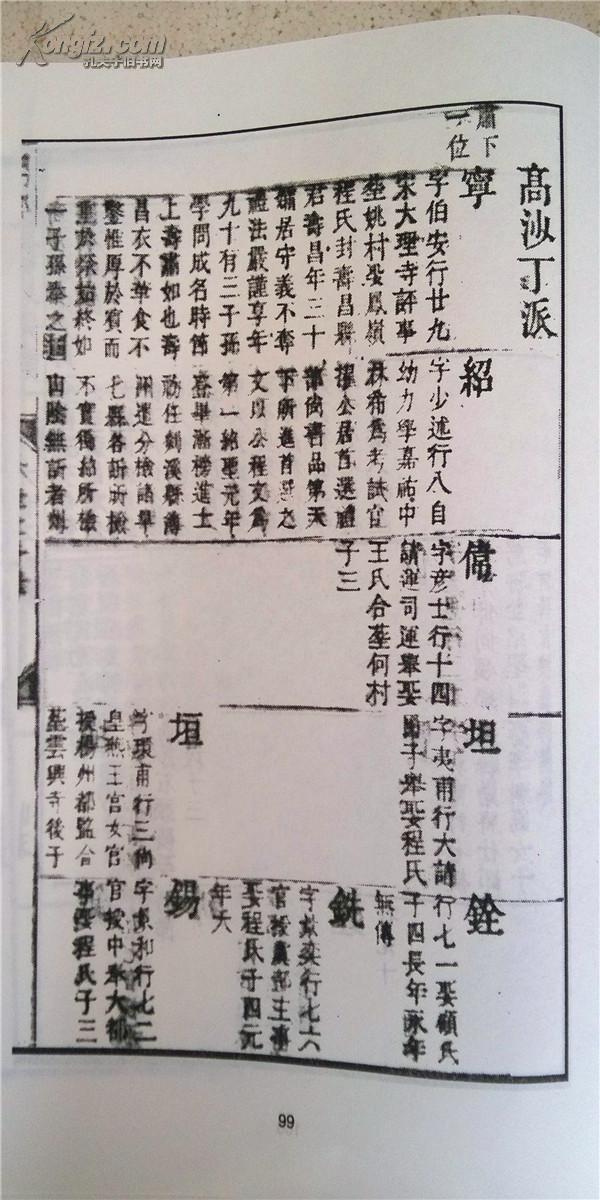 Kongfz.com
孔夫子旧书网
高沙丁派
肅下
一位
寧
字伯安行廿九
宋大理寺評事
塟姚村娶鳳嶺
程氏封壽昌縣
君壽昌年三十
居守義不奪
禮法嚴謹享年
九十有三子孫
學問成名時節
上壽肅如也壽
昌衣不華食不
鑿惟厚於賓而
終如
子孫奉之
紹
字少述行八自
幼力學嘉祐中
林希爲考試官
擢公居首選禮
部尚書品第天
下所進首選之
文以公程文爲
第一紹聖元年
畢漸榜進士
初任剡溪縣簿
州選分檢諸旱
七縣各訴所檢
不實獨紹所檢
山陰無訴者
偉
字彥士行十四
請運司運舉娶
王氏合塟何村
子三
坦
字夷甫行大請
國子舉娶程氏
垣
字環甫行三尚
皇燕王宮女官
授楊州都監合
塟雲興寺後子
銓
行七一娶顧氏
子四長年永年
無傳
銑
字 奕行七六
官授農部主事
娶程氏子四元
年大
錫
字 和行七二
官授中奉大都
事娶程氏子三
99